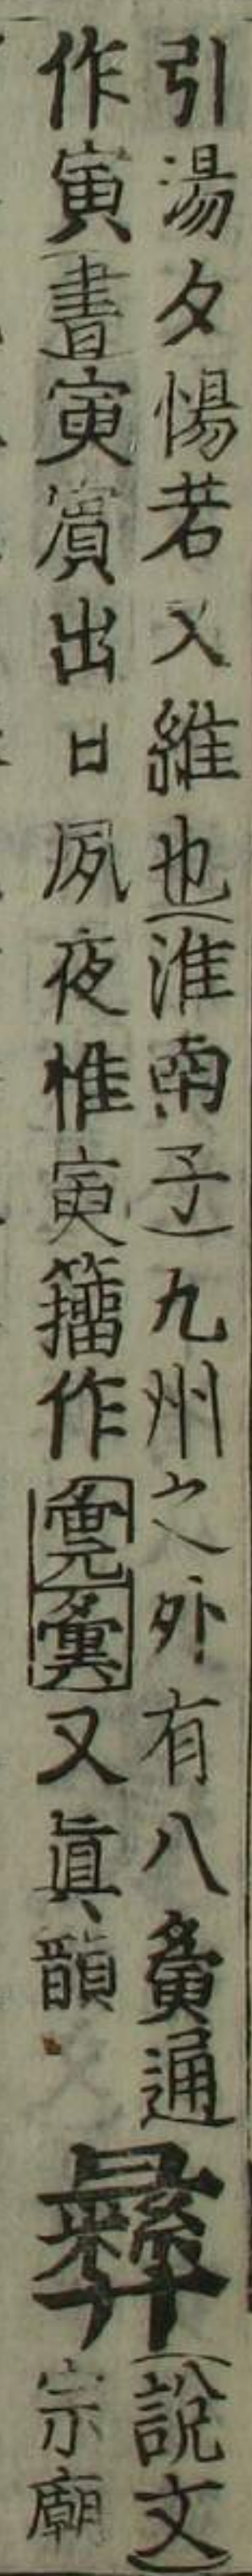 引湯夕惕若又維也(淮南子)九州之外有八夤通
作寅書寅賓出日夙夜惟寅籒作
又眞韻
彝(說文)
宗廟